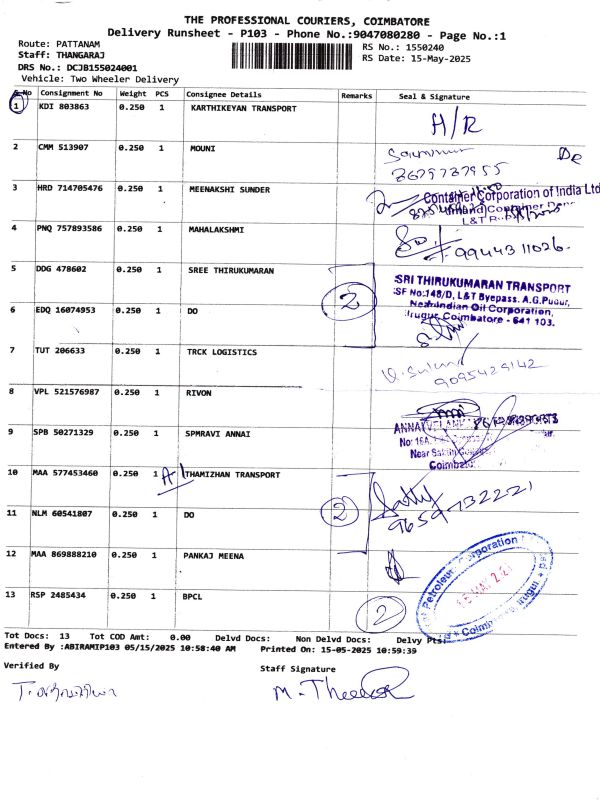 THE PROFESSIONAL COURIERS, COIMBATORE
Delivery Runsheet - P103 - Phone No.:9047080280 - Page No.:1
Route: PATTANAM
RS No.: 1550240
Staff: THANGARAJ
RS Date: 15-May-2025
DRS No.: DCJB155024001
Vehicle: Two Wheeler Delivery
S.No Consignment No Weight PCS Consignee Details Remarks Seal & Signature
1 KDI 803863 0.250 1 KARTHIKEYAN TRANSPORT
H/R
2 CMM 513907 0.250 1 MOUNI
3 HRD 714705476 0.250 1 MEENAKSHI SUNDER
Container Corporation of India Ltd
4 PNQ 757893586 0.250 1 MAHALAKSHMI
9944311026
5 DDG 478602 0.250 1 SREE THIRUKUMARAN
2
SRI THIRUKUMARAN TRANSPORT
SF No:148/D, L&T Byepass, A.G.Pudur,
Near Indian Oil Corporation,
Irugur, Coimbatore - 641 103.
6 EDQ 16074953 0.250 1 DO
7 TUT 206633 0.250 1 TRCK LOGISTICS
9095429142
8 VPL 521576987 0.250 1 RIVON
9 SPB 50271329 0.250 1 SPMRAVI ANNAI
10 MAA 577453460 0.250 1 A1 THAMIZHAN TRANSPORT
2
11 NLM 60541807 0.250 1 DO
12 MAA 869888210 0.250 1 PANKAJ MEENA
13 RSP 2485434 0.250 1 BPCL
2
Tot Docs: 13 Tot COD Amt: 0.00 Delvd Docs: Non Delvd Docs: Delvy Pts:
Entered By :ABIRAMIP103 05/15/2025 10:58:40 AM Printed On: 15-05-2025 10:59:39
Verified By
Staff Signature